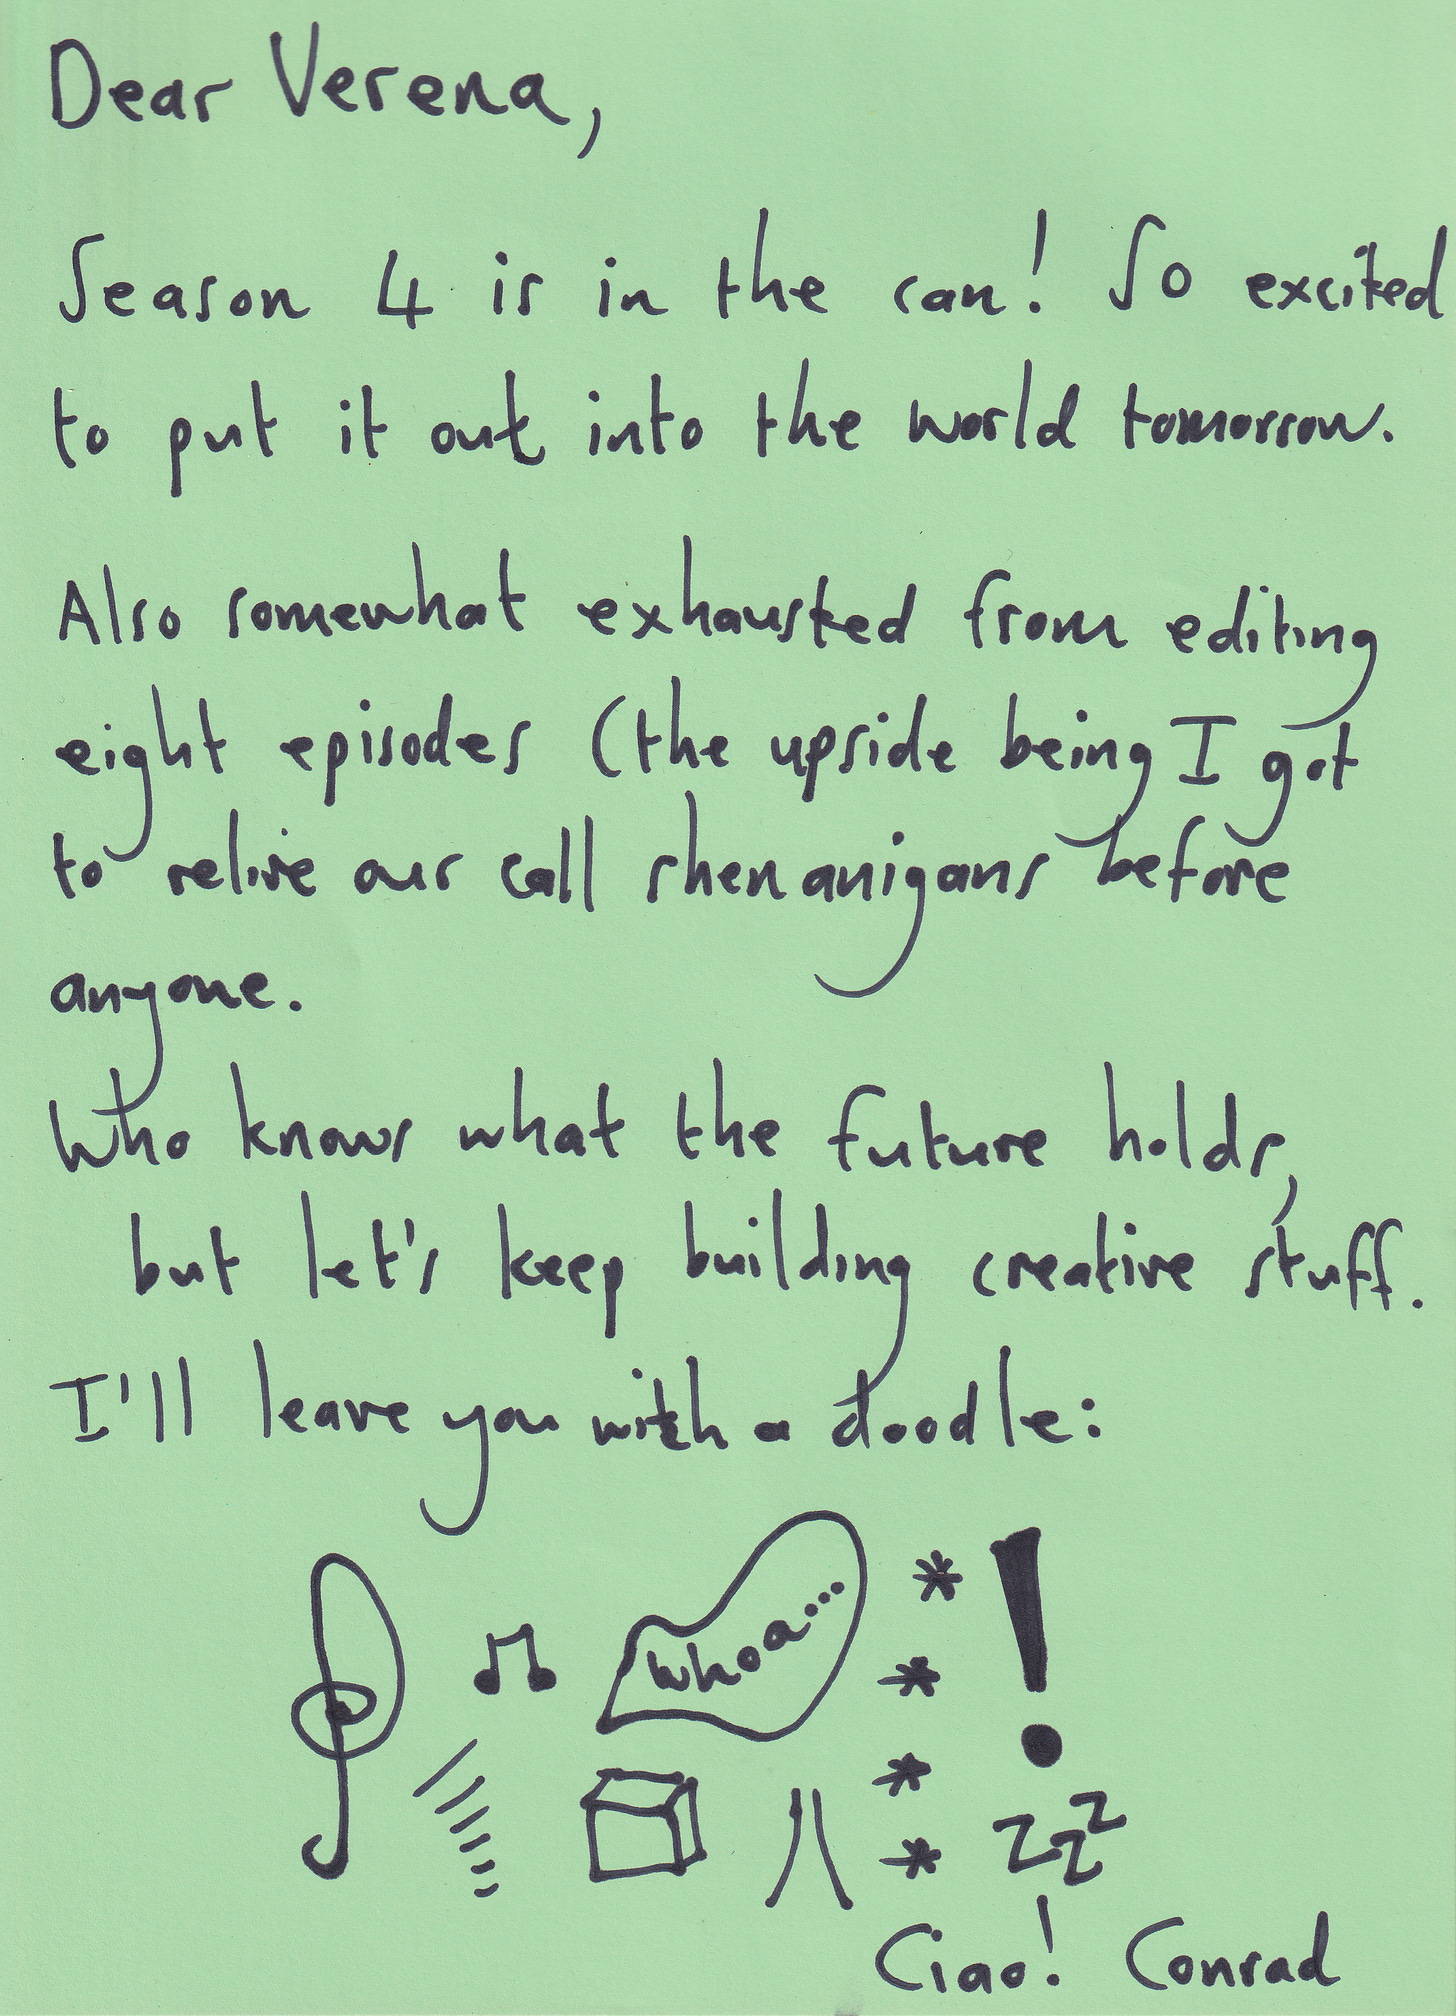 Dear Verena,
Season 4 is in the can! So excited
to put it out into the world tomorrow.
Also somewhat exhausted from editing
eight episodes (the upside being I got
to relive our call shenanigans before
anyone.
Who knows what the future holds,
but let's keep building creative stuff.
I'll leave you with a doodle:
whoa...
* !
*
*
* zzz
Ciao! Conrad